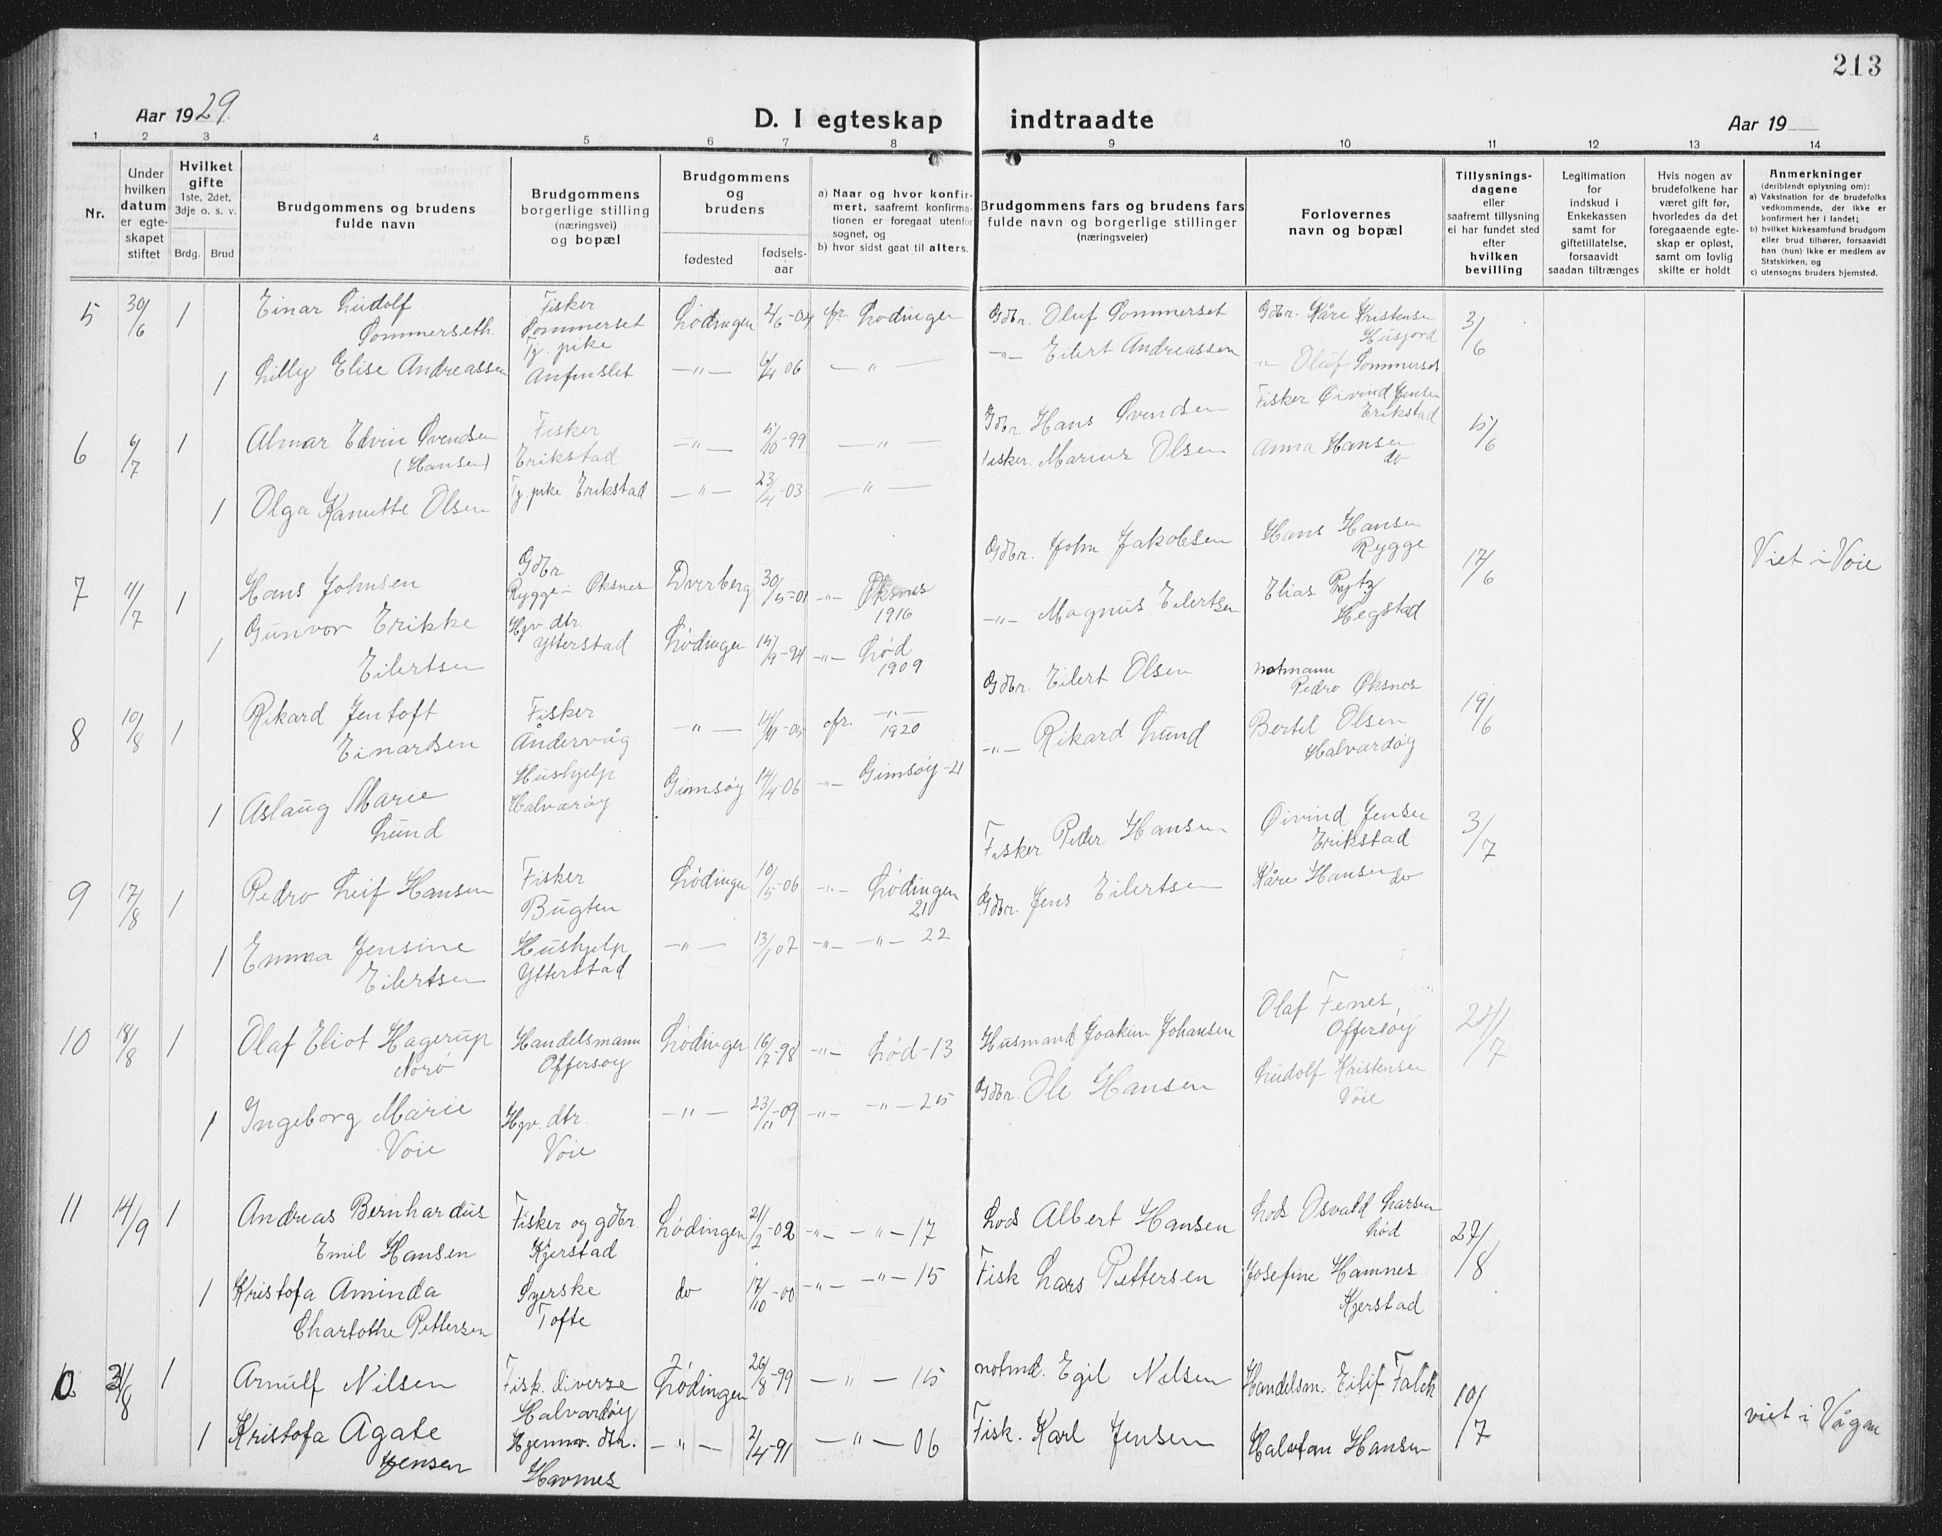 213
Aar 1929.
D. I egteskap indtraadte
Aar 19
1 2 3 4 5 6 7 8 9 10 11 12 13 14
Nr.
Under hvilken datum er egteskapet stiftet
Hvilket gifte
1ste, 2det, 3dje o. s. v.
Brdg. Brud
Brudgommens og brudens fulde navn
Brudgommens borgerlige stilling (næringsvei) og bopæl
Brudgommens og brudens
fødested
fødselsaar
a) Naar og hvor konfirmert, saafremt konfirmationen er foregaat utenfor sognet, og
b) hvor sidst gaat til alters.
Brudgommens fars og brudens fars fulde navn og borgerlige stillinger (næringsveier)
Forlovernes navn og bopæl
Tillysningsdagene eller saafremt tillysning ei har fundet sted efter hvilken bevilling
Legitimation for indskud i Enkekassen samt for giftetillatelse, forsaavidt saadan tiltrænges
Hvis nogen av brudefolkene har været gift før, hvorledes da det foregaaende egteskap er opløst, samt om lovlig skifte er holdt
Anmerkninger
(deriblandt oplysning om):
a) Vaksination for de brudefolks vedkommende, der ikke er konfirmert her i landet;
b) hvilket kirkesamfund brudgom eller brud tilhører, forsaavidt han (hun) ikke er medlem av Statskirken, og
c) utensogns bruders hjemsted.
5 30/6 1 Einar Ludolf Sommerseth Fisker Sommerset Lødingen 2/6-04 ofr Lødingen Gdbr. Oluf Sommerset Gdbr. Kåre Kristensen Husjord 3/6
1 Lilly Elise Andreassen Tj. pike Anfinslet —"— 6/4 06 —"— —"— Eilert Andreassen " Oluf Sommerset
6 6/7 1 Almar Edvin Svendsen (Hansen) Fisker Erikstad —"— 5/10-99 —"— Gdbr. Hans Svendsen Fisker Øivind Jensen Erikstad 15/6
1 Olga Kanutte Olsen Tj. pike Erikstad —"— 23/4-03 —"— Fisker. Marius Olsen Anna Hansen do
7 11/7 1 Hans Johnsen Gdbr Rygge - Øksnes Dverberg 30/5-01 —"— Øksnes 1916 Gdbr. John Jakobsen Hans Hansen Rygge 17/6 Viet i Voie
1 Gunvor Erikke Eilertsen Hjv. dtr. Ytterstad Lødingen 15/9-94 —"— Lød 1909 —"— Magnus Eilertsen Elias Rytz Hegstad
8 10/8 1 Rikard Jentoft Einardsen Fisker Åndervåg —"— 14/11-05 ofr. —"— 1920 Gdbr. Eilert Olsen notmann Pedro Øksnes 19/6
1 Aslaug Marie Lund Hushjelp Halvarøy Gimsøy 14/4 06 —"— Gimsøy-21 —"— Rikard Lund Bertel Olsen Halvardøy
9 17/8 1 Pedro Leif Hansen Fisker Bugten Lødingen 10/5-06 —"— Lødingen 21 Fisker Peder Hansen Øivind Jensen Erikstad 3/7
1 Emma Jensine Eilertsen Hushjelp Ytterstad —"— 13/1 07 —"— —"— 22 Gdbr. Jens Eilertsen Kåre Hansen do
10 18/8 1 Olaf Eliot Hagerup Norø Handelsmann Offersøy Lødingen 16/7-98 —"— Lød-13 Husmand Joakim Johansen Olaf Fenes Offersøy 21/7
1 Ingeborg Marie Voie Hjv. dtr. Voie —"— 23/11-09 —"— —"— 25 Gdbr. Ole Hansen Ludolf Kristensen Voie
11 14/9 1 Andreas Bernhardus Emil Hansen Fisker og gdbr. Kjerstad Lødingen 21/2-02 —"— —"— 17 Lods Albert Hansen Lods Osvald Larsen Lød 27/8
1 Kristofa Aminda Charlothe Pettersen Syerske Tofte do 17/10-00 —"— —"— 15 Fisk Lars Pettersen Josefine Hamnes Kjerstad
31/8 1 Arnulf Nilsen Fisk. diverse Halvardøy Lødingen 26/8-99 —"— 15 notmd. Egil Nilsen Handelsm. Eilif Falck 10/7 viet i Vågan
1 Kristofa Agate Jensen Hjemmv. dtr. Havnnes —"— 2/4-91 —"— 06 Fisk. Karl Jensen Halvfan Hansen